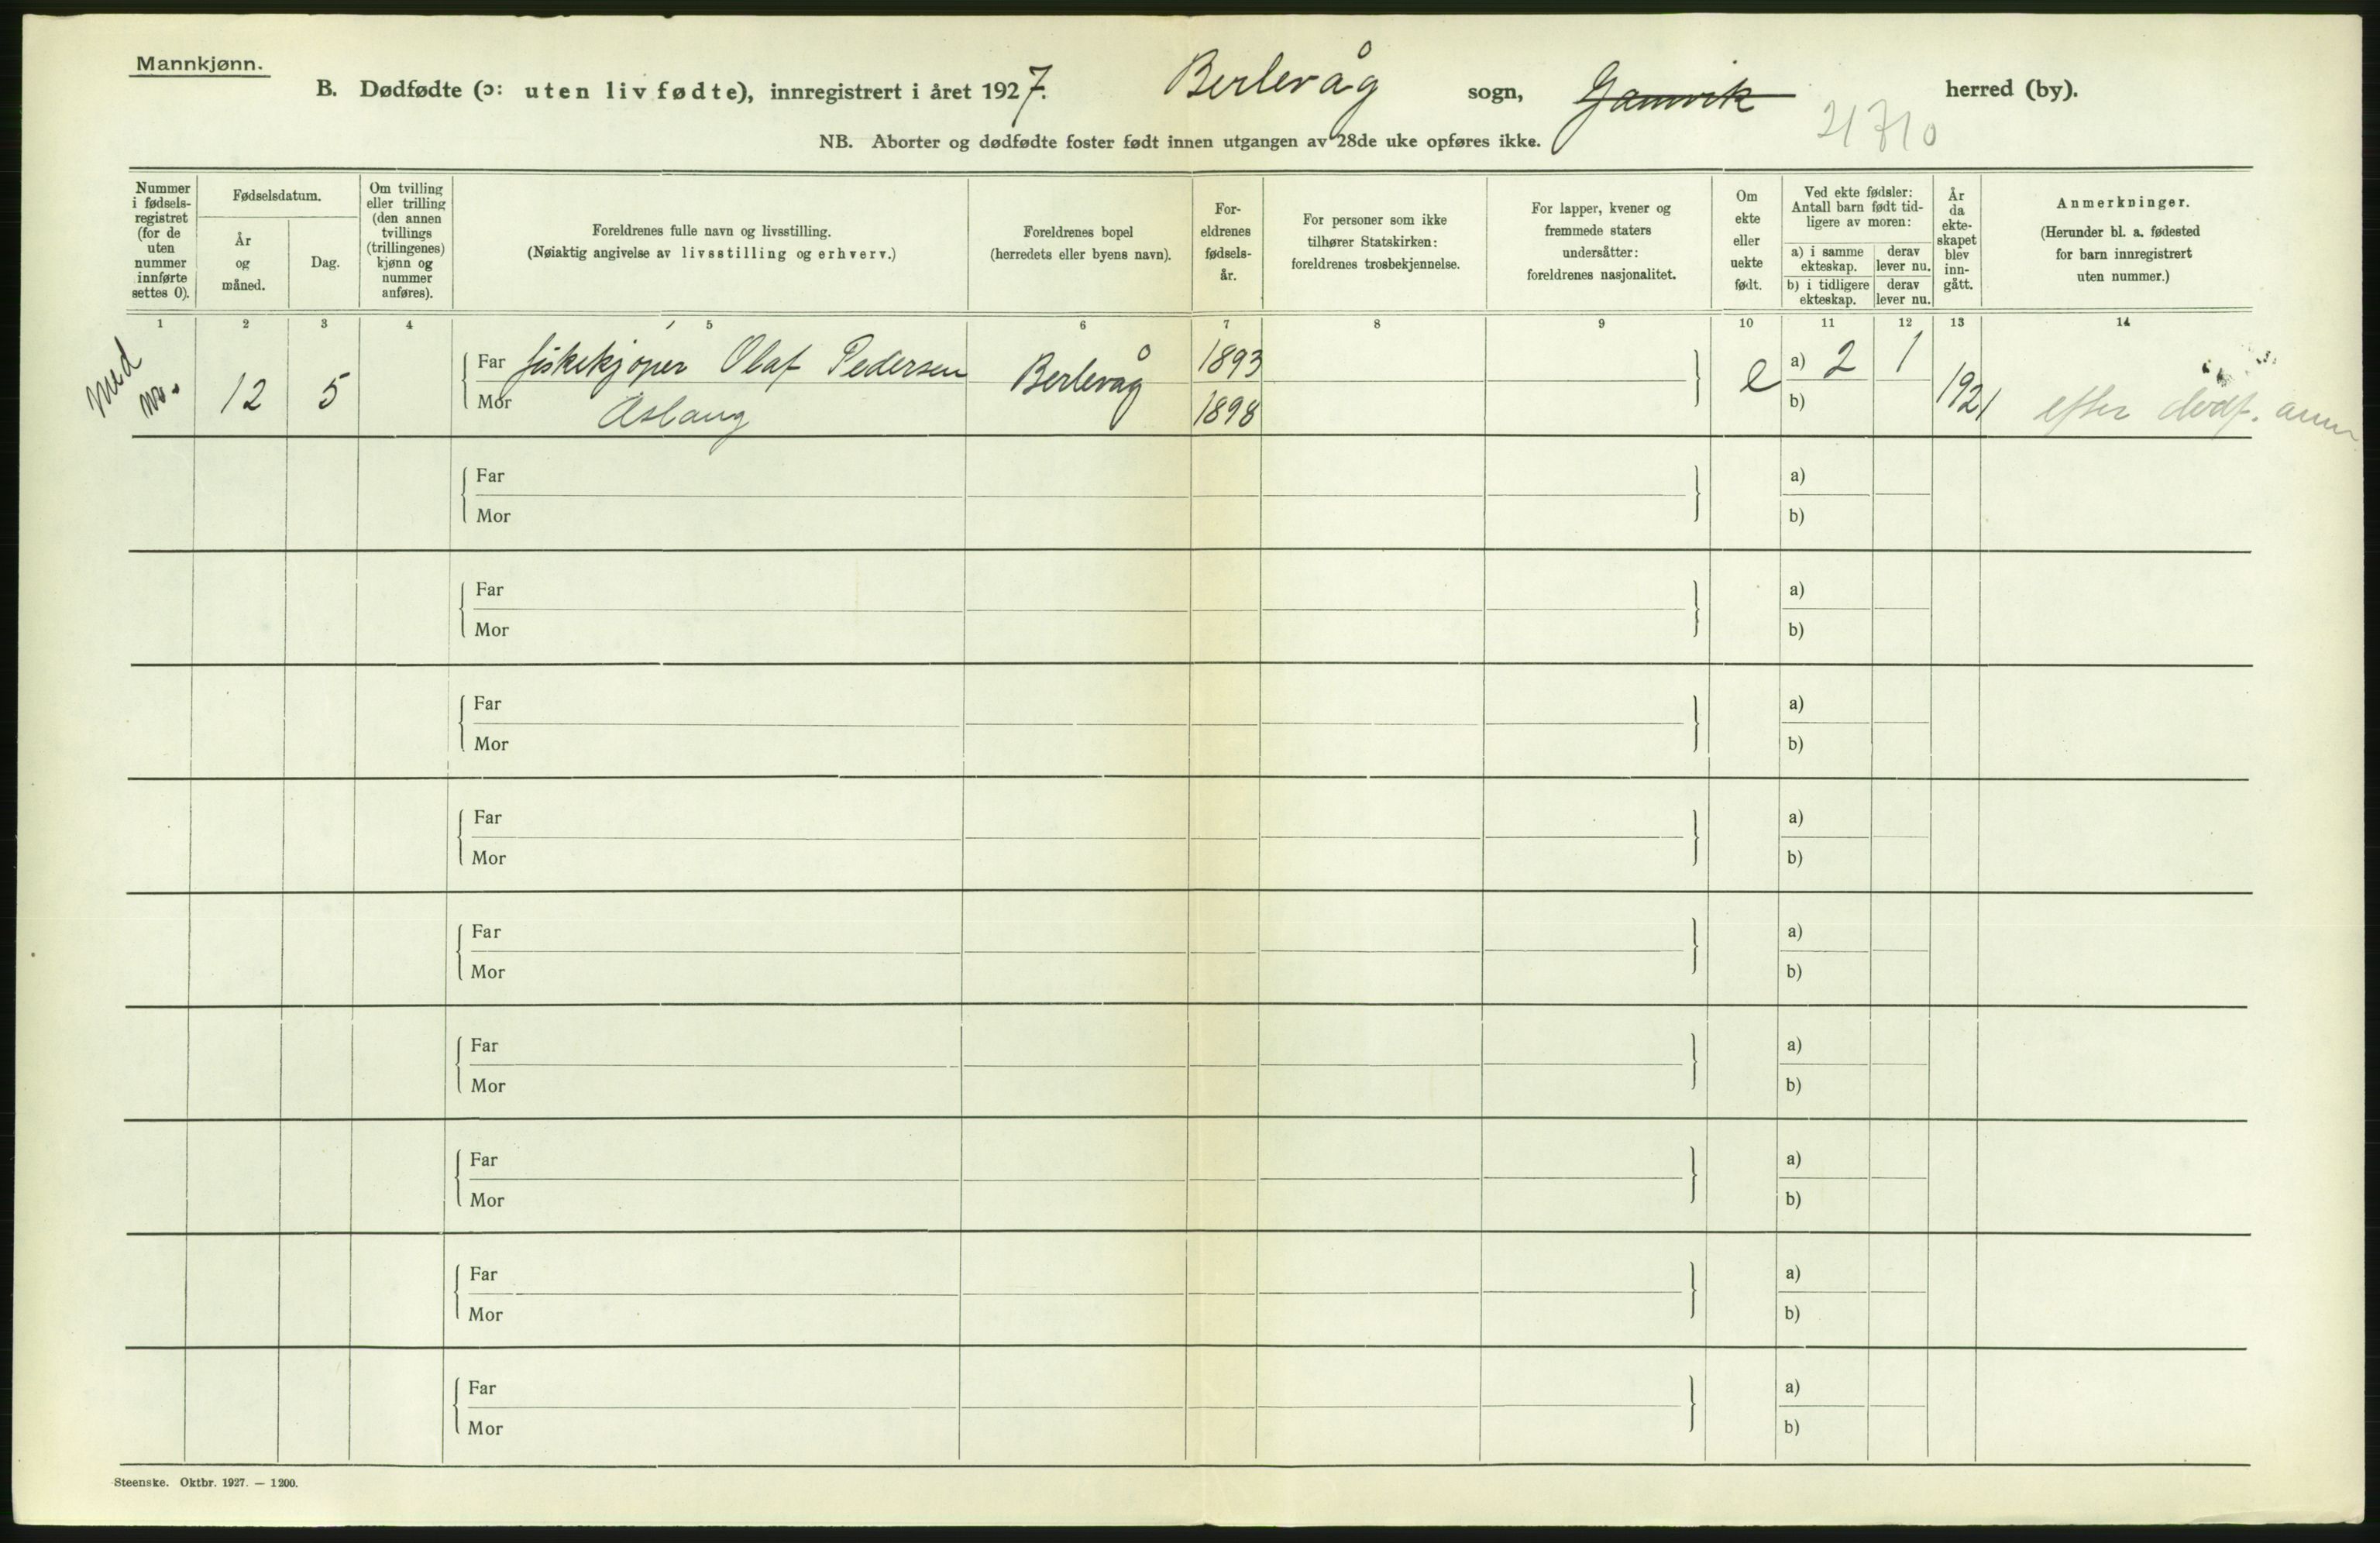 Mannkjønn.
B. Dødfødte (ɔ: uten liv fødte), innregistrert i året 1927. Berlevåg sogn, Gamvik herred (by).
21710
NB. Aborter og dødfødte foster født innen utgangen av 28de uke opføres ikke.
Nummer i fødsels- registret (for de uten nummer innførte settes 0).
Fødselsdatum.
År og måned.
Dag.
Om tvilling eller trilling (den annen tvillings (trillingenes) kjønn og nummer anføres).
Foreldrenes fulle navn og livsstilling.
(Nøiaktig angivelse av livsstilling og erhverv.)
Foreldrenes bopel
(herredets eller byens navn).
For- eldrenes fødsels- år.
For personer som ikke tilhører Statskirken: foreldrenes trosbekjennelse.
For lapper, kvener og fremmede staters undersåtter: foreldrenes nasjonalitet.
Om ekte eller uekte født.
Ved ekte fødsler: Antall barn født tid- ligere av moren:
a) i samme ekteskap.
derav lever nu.
b) i tidligere ekteskap.
derav lever nu.
År da ekte- skapet blev inn- gått.
Anmerkninger.
(Herunder bl. a. fødested for barn innregistrert uten nummer.)
1 2 3 4 5 6 7 8 9 10 11 12 13 14
med no.
12 5
Far fiskekjøper Olaf Pedersen Berlevåg 1893
Mor Aslaug 1898
e a) 2 1
b)
1921 efter dødf. anm
Far a)
Mor b)
Far a)
Mor b)
Far a)
Mor b)
Far a)
Mor b)
Far a)
Mor b)
Far a)
Mor b)
Far a)
Mor b)
Far a)
Mor b)
Far a)
Mor b)
Steenske. Oktbr. 1927. — 1200.